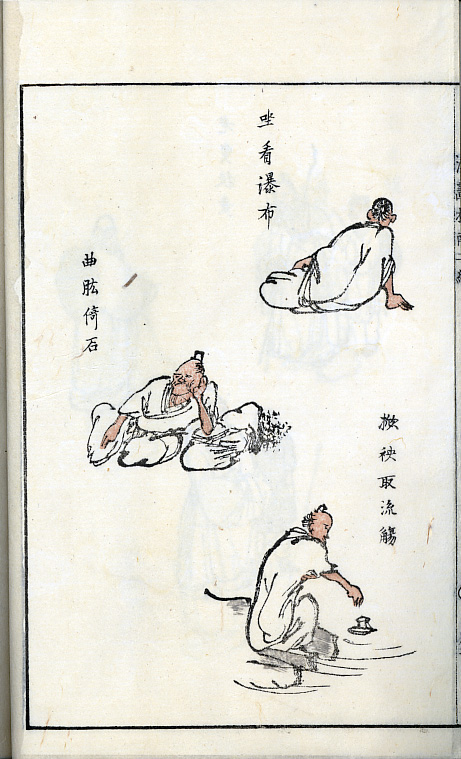 坐看瀑布
曲肱倚石
袂取流觴